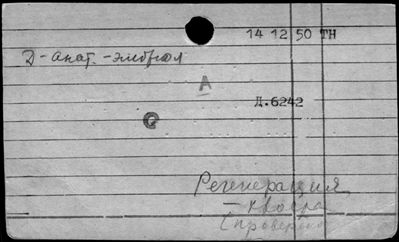 14 12 50 TH
Д-анат.-эмбриол
A
Д.6242
Q
Регенерация
- хвоста
(проверено